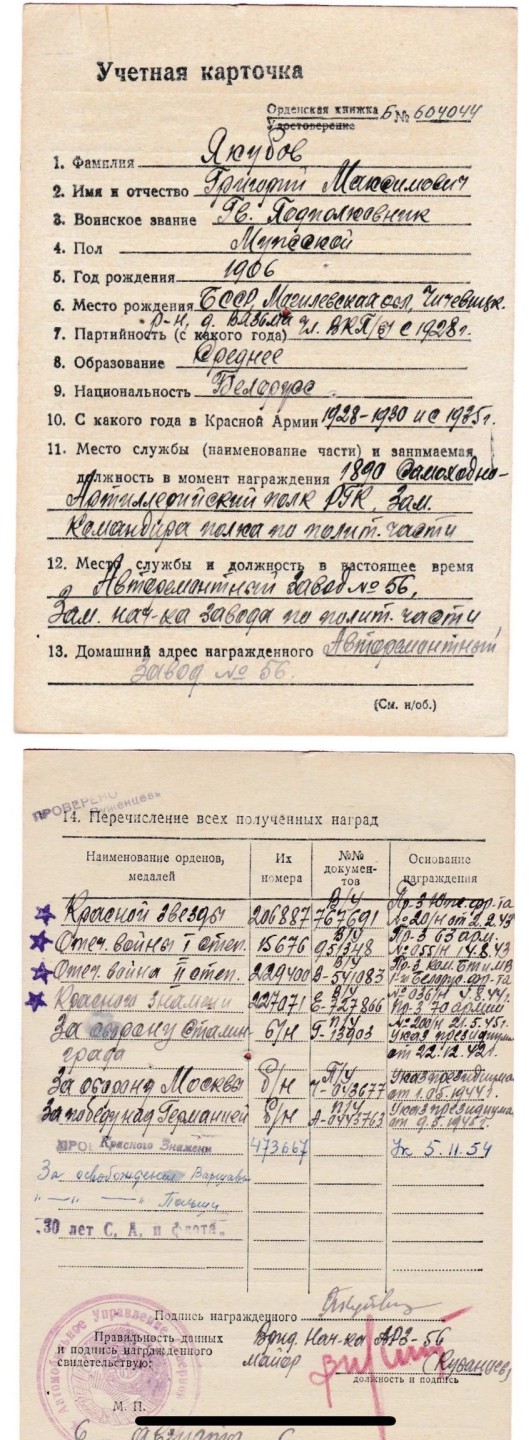 Учетная карточка
Орденская книжка Б № 604044
Удостоверение
1. Фамилия Якубов
2. Имя и отчество Григорий Максимович
3. Воинское звание Гв. Подполковник
4. Пол Мужской
5. Год рождения 1906
6. Место рождения БССР, Могилевская обл,
р-н, д. Вязьма
7. Партийность (с какого года) Чл. ВКП/б/ с 1928г.
8. Образование Среднее
9. Национальность Белорусс
10. С какого года в Красной Армии 1928-1930 и с 1935г.
11. Место службы (наименование части) и занимаемая
должность в момент награждения 1890 Самоходно-
Артиллерийский полк РГК, Зам.
Командира полка по полит. части
12. Место службы и должность в настоящее время
Авторемонтный завод № 56,
Зам. нач-ка завода по полит. части
13. Домашний адрес награжденного Авторемонтный
завод № 56.
(См. н/об.)
ПРОВЕРЕНО
14. Перечисление всех полученных наград
Наименование орденов, медалей Их номера №№ документов Основание награждения
Красной Звезды 206887 В/ч 767691 Пр-з Юж. фр-та № 20/н от 2.2.43
Отеч. войны I степ. 15676 В/ч 951348 Пр-з 63 арм. № 055/н 4.8.43
Отеч. война II степ. 229400 В/ч В-541083 Пр-з ком. БТ и МВ 1-й Белорус. фр-та № 036/н 4.8.44г.
Красного Знамени 227071 В/ч Е-727866 Пр-з 70 армии № 200/н 21.5.45г.
За оборону Сталинграда б/н Г-13903 Указ президиума от 22.12.42г.
За оборону Москвы б/н П/у Ч-043677 Указ президиума от 1.05.1944г.
За победу над Германией б/н П/у А-0443763 Указ президиума от 9.5.1945г.
Красного Знамени 473667 Ук 5.11.54
За освобождение Варшавы
-"- -"- -"- Польши
"30 лет С. А. и флота"
Подпись награжденного
Правильность данных
и подпись награжденного
свидетельствую:
Врид. Нач-ка АРЗ-56
майор
должность и подпись
М. П.
6 августа